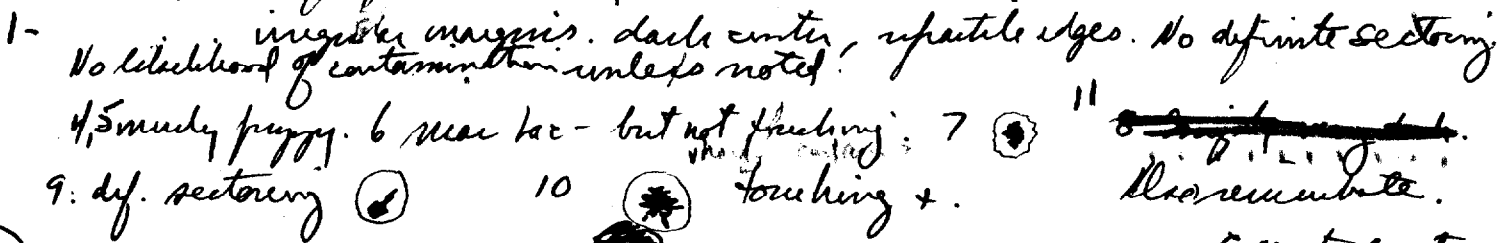 1- irregular margins. dark center, refractile edges. No definite sectoring.
No likelihood of contamination unless noted.
4,5 mucky puppy. 6 near lac - but not touching. 7 11 8
9: def. sectoring 10 touching +.